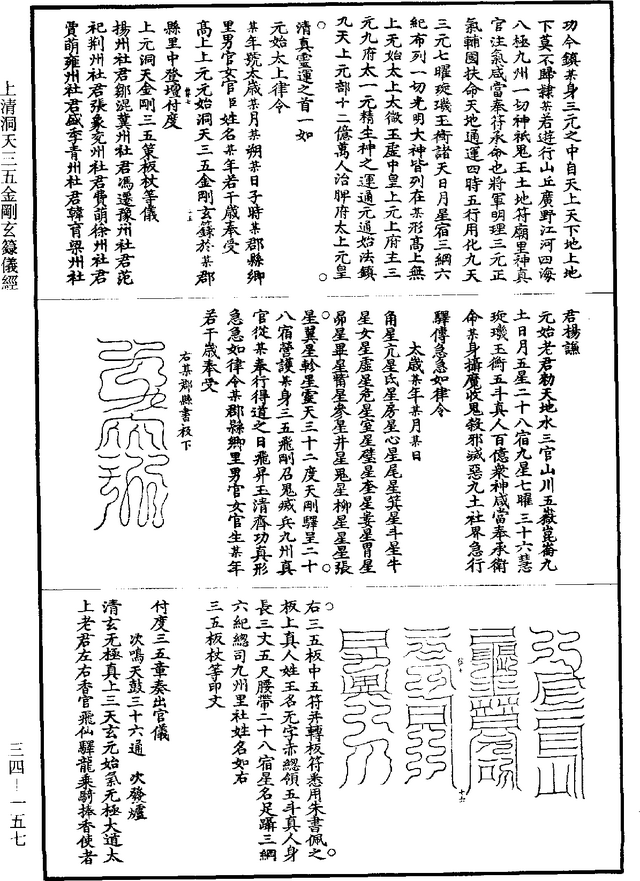 功令鎮某身三元之中自天上天下地上地
下莫不歸隸某若遊行山丘廣野江河四海
八極九州一切神祇鬼王土地符廟里神真
官注氣咸當奉符承命也將軍明理三元正
氣輔國扶命天地通運四時五行用化九天
三元七曜琁璣玉衡諸天日月星宿三綱六
紀布列一切光明大神皆列在某形高上無
上无始太上太微玉虛中皇上元上府主三
元九府太一元精生神之運通元通始法鎮
九天上元部十二億萬人治脾府太上元皇
清真靈運之首一如
元始太上律令
某年號太歲某月某朔某日子時某郡縣鄉
里男官女官臣姓名某年若干歲奉受
高上上元元始洞天三五金剛玄籙於某郡
縣里中登壇付度
上元洞天金剛三五策板杖等儀
揚州社君鄒混冀州社君馮遷豫州社君范
祀荆州社君張象兗州社君費萌徐州社君
賈萌雍州社君盛季青州社君韓育梁州社
君楊謙
元始老君勑天地水三官山川五嶽崑崙九
土日月五星二十八宿九星七曜三十六慧
琁璣玉衡五斗真人百億衆神咸當奉承衛
命某身攝魔收鬼殺邪滅惡九土社界急行
驛傳急急如律令
太歲某年某月某日
角星亢星氐星房星心星尾星箕星斗星牛
星女星虛星危星室星壁星奎星婁星胃星
昴星畢星觜星參星井星鬼星柳星星星張
星翼星軫星靈天三十二度天剛驛呈二十
八宿營護某身三五飛剛召鬼滅兵九州真
官從某奉行得道之日飛昇玉清齋功真形
急急如律令某郡縣鄉里男官女官生某年
若干歲奉受
右某郡縣書板下
右三五板中五符并轉板符悉用朱書佩之
板上真人姓王名无字赤總領五斗真人身
長三丈五尺腰帶二十八宿星名足躡三綱
六紀總司九州里社姓名如右
三五板杖等印文
付度三五章奏出官儀
次鳴天鼓三十六通　次發爐
清玄无極真上三天玄元始氣无極大道太
上老君左右香官飛仙驛龍乘騎捧香使者
上清洞天三五金剛玄籙儀經
三四－一五七